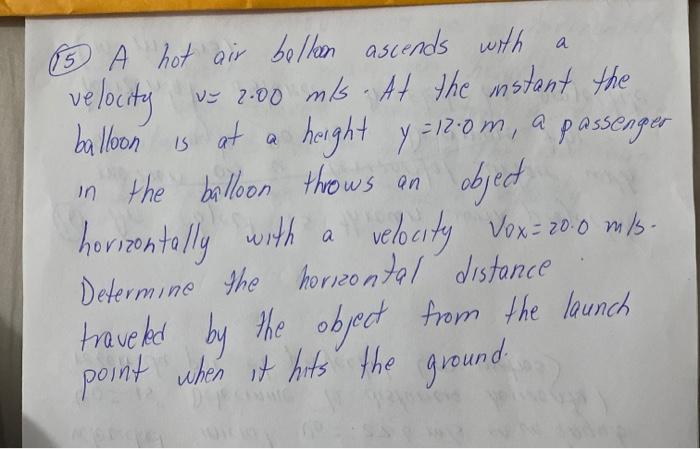 15 A hot air balloon ascends with a
velocity v= 2.00 m/s. At the instant the
balloon is at a height y=12.0m, a passenger
in the balloon throws an object
horizontally with a velocity Vox=20.0 m/s.
Determine the horizontal distance
traveled by the object from the launch
point when it hits the ground.